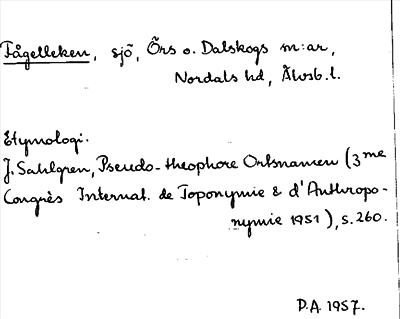 Fågelleken, sjö, Örs o. Dalskogs m:ar,
Nordals hd, Älvsb.l.
Etymologi.
J. Sahlgren, Pseudo-theophore Ortsnamen (3me
Congrès Internat. de Toponymie & d'Anthropo-
nymie 1951), s. 260.
P.A. 1957.